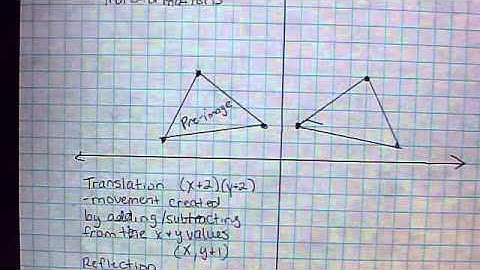 Pre-image
Translation (x+2)(y-2)
- movement created
by adding/subtracting
from the x+y values
(x, y+1)
Reflection